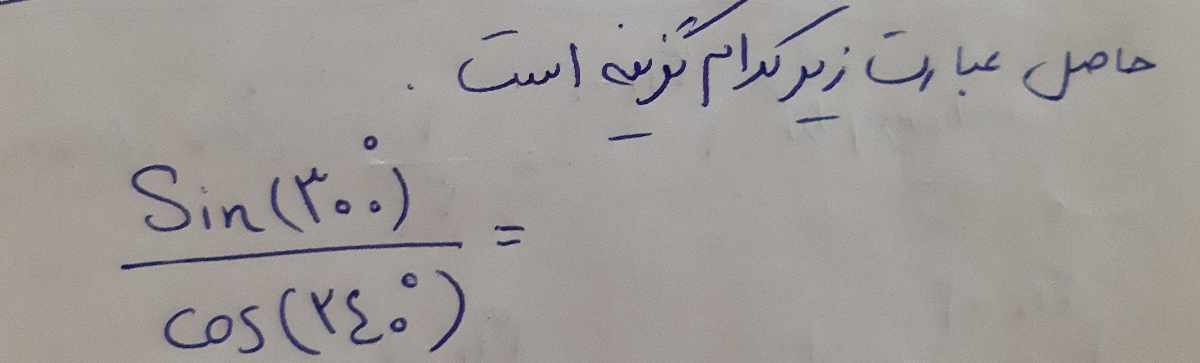 حاصل عبارت زیر کدام گزینه است .
Sin(۳۰۰°)
=
cos(۲٤۰°)